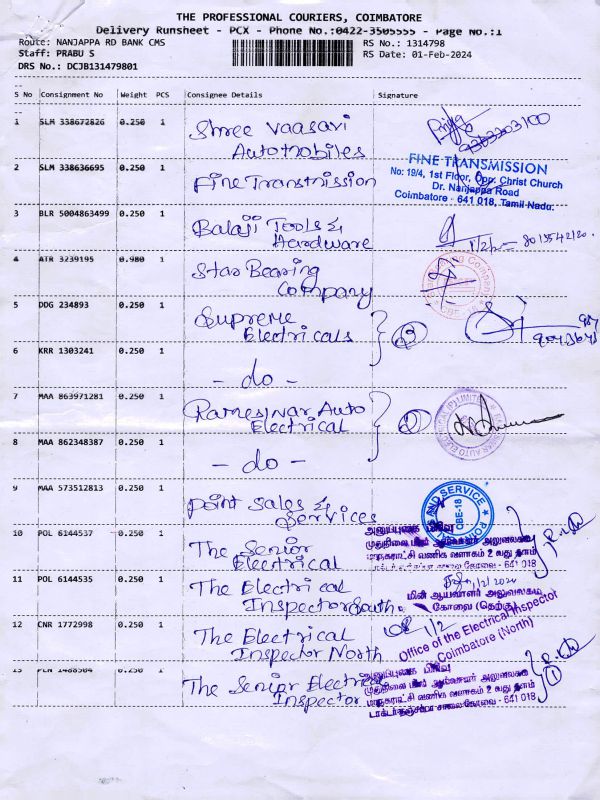 THE PROFESSIONAL COURIERS, COIMBATORE
Delivery Runsheet - PCX - Phone No.:0422-3505555 - Page No.:1
Route: NANJAPPA RD BANK CMS
RS No.: 1314798
Staff: PRABU S
RS Date: 01-Feb-2024
DRS No.: DCJB131479801
S No Consignment No Weight PCS Consignee Details Signature
1 SLM 338672826 0.250 1 Shree Vaasavi
Automobiles
2 SLM 338636695 0.250 1 Fine Transmission
FINE TRANSMISSION
No: 19/4, 1st Floor, Opp. Christ Church
Dr. Nanjappa Road
Coimbatore - 641 018, Tamil Nadu.
3 BLR 5004863499 0.250 1 Balaji Tools &
Hardware
4 ATR 3239195 0.980 1 Star Bearing
Company
5 DDG 234893 0.250 1 Supreme
Electricals
6 KRR 1303241 0.250 1 - do -
7 MAA 863971281 0.250 1 Rameswar Auto
Electrical
8 MAA 862348387 0.250 1 - do -
9 MAA 573512813 0.250 1 Point Sales &
Services
AND SERVICE
CBE-18
10 POL 6144537 0.250 1 The Senior
Electrical
மாநகராட்சி வணிக வளாகம் 2 வது தளம்
11 POL 6144535 0.250 1 The Electrical
Inspector South
மின் ஆய்வாளர் அலுவலகம்
கோவை (தெற்கு)
12 CNR 1772998 0.250 1 The Electrical
Inspector North
1/2
Office of the Electrical Inspector
Coimbatore (North)
13 0.250 1 The Senior Electrical
Inspector
மாநகராட்சி வணிக வளாகம் 2 வது தளம்